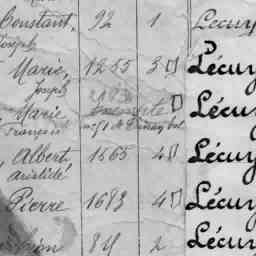 Constant, 92 1 Lécuy
Joseph
Marie, 1255 3 Lécuy
Joseph
Marie Lécuy
François
Albert, 1565 4 Lécuy
aristide
Pierre 1683 4 Lécuy
84 2 Lécuy